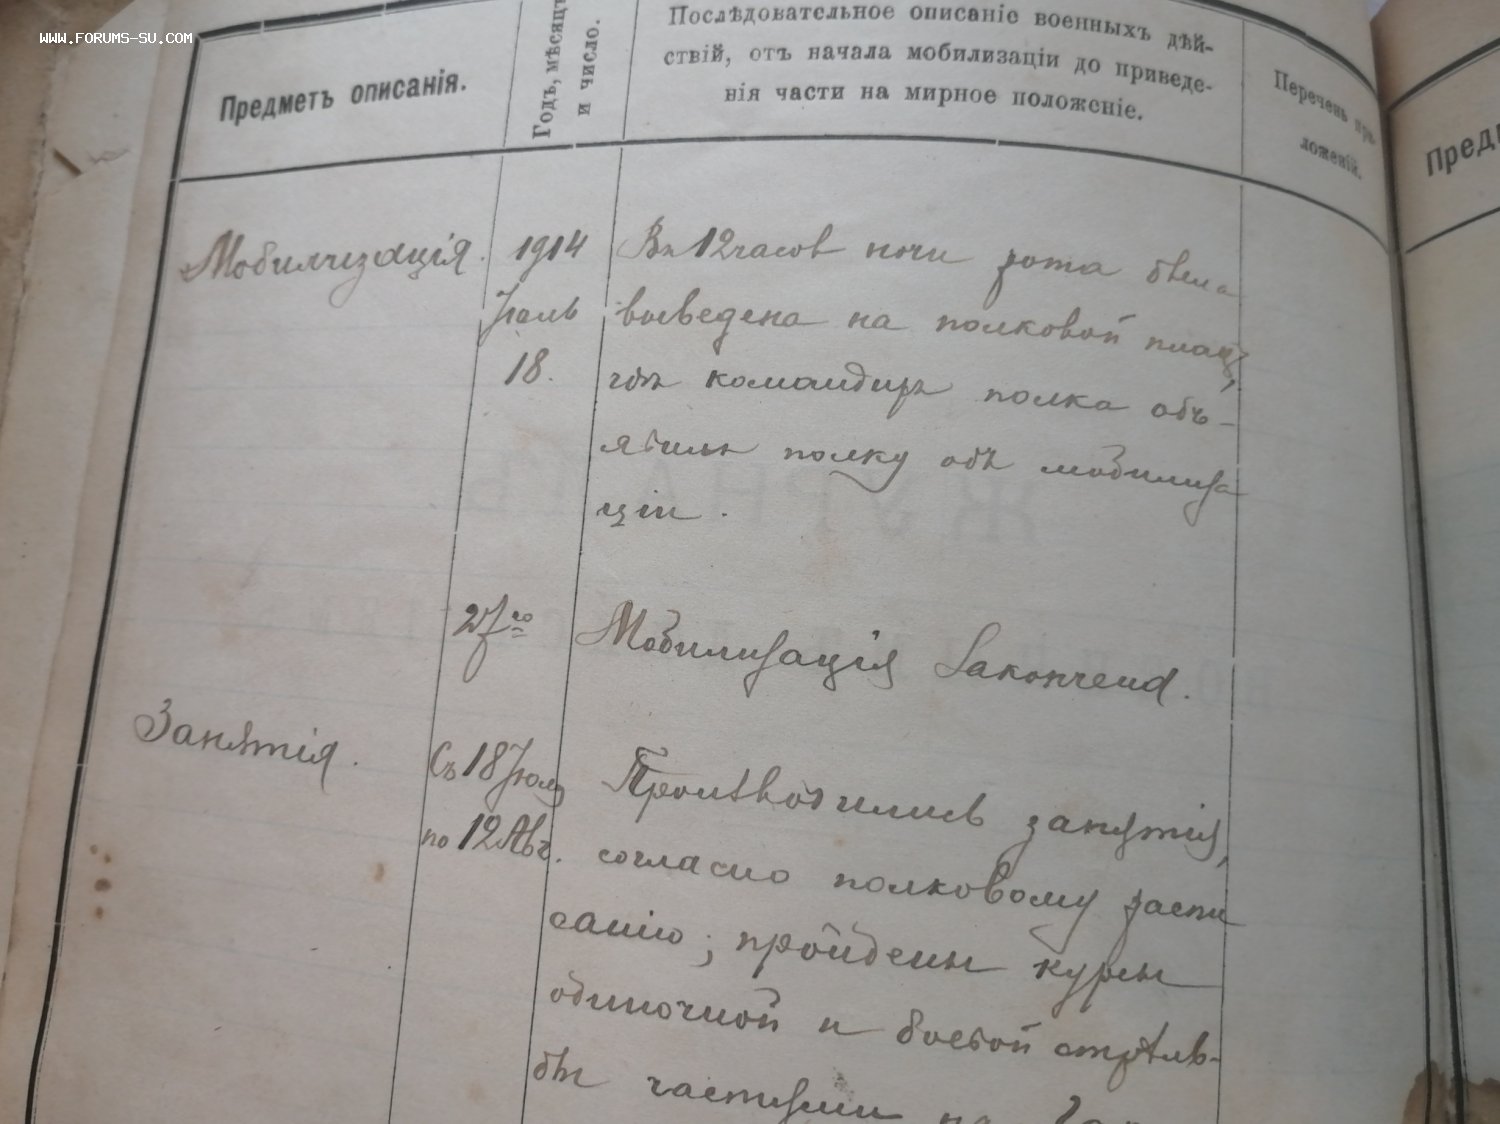 WWW.FORUMS-SU.COM
Предметъ описанія.
Годъ, мѣсяцъ
и число.
Послѣдовательное описаніе военныхъ дѣй-
ствій, отъ начала мобилизаціи до приведе-
нія части на мирное положеніе.
Перечень при-
ложеній.
Пред
Мобилизація.
1914
Іюль
18.
Въ 12 часов ночи рота была
выведена на полковой плац,
гдѣ командиръ полка объ-
явилъ полку объ мобилиза
ціи.
Мобилизація закончена.
Занятія.
Съ 18 Іюля
по 12 Авг.
Производились занятія,
согласно полковому распи
санію; пройденъ курсъ
одиночной и боевой стрѣль-
бы частями на